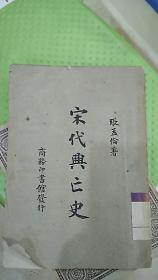 張孟倫著
宋代興亡史
商務印書館發行